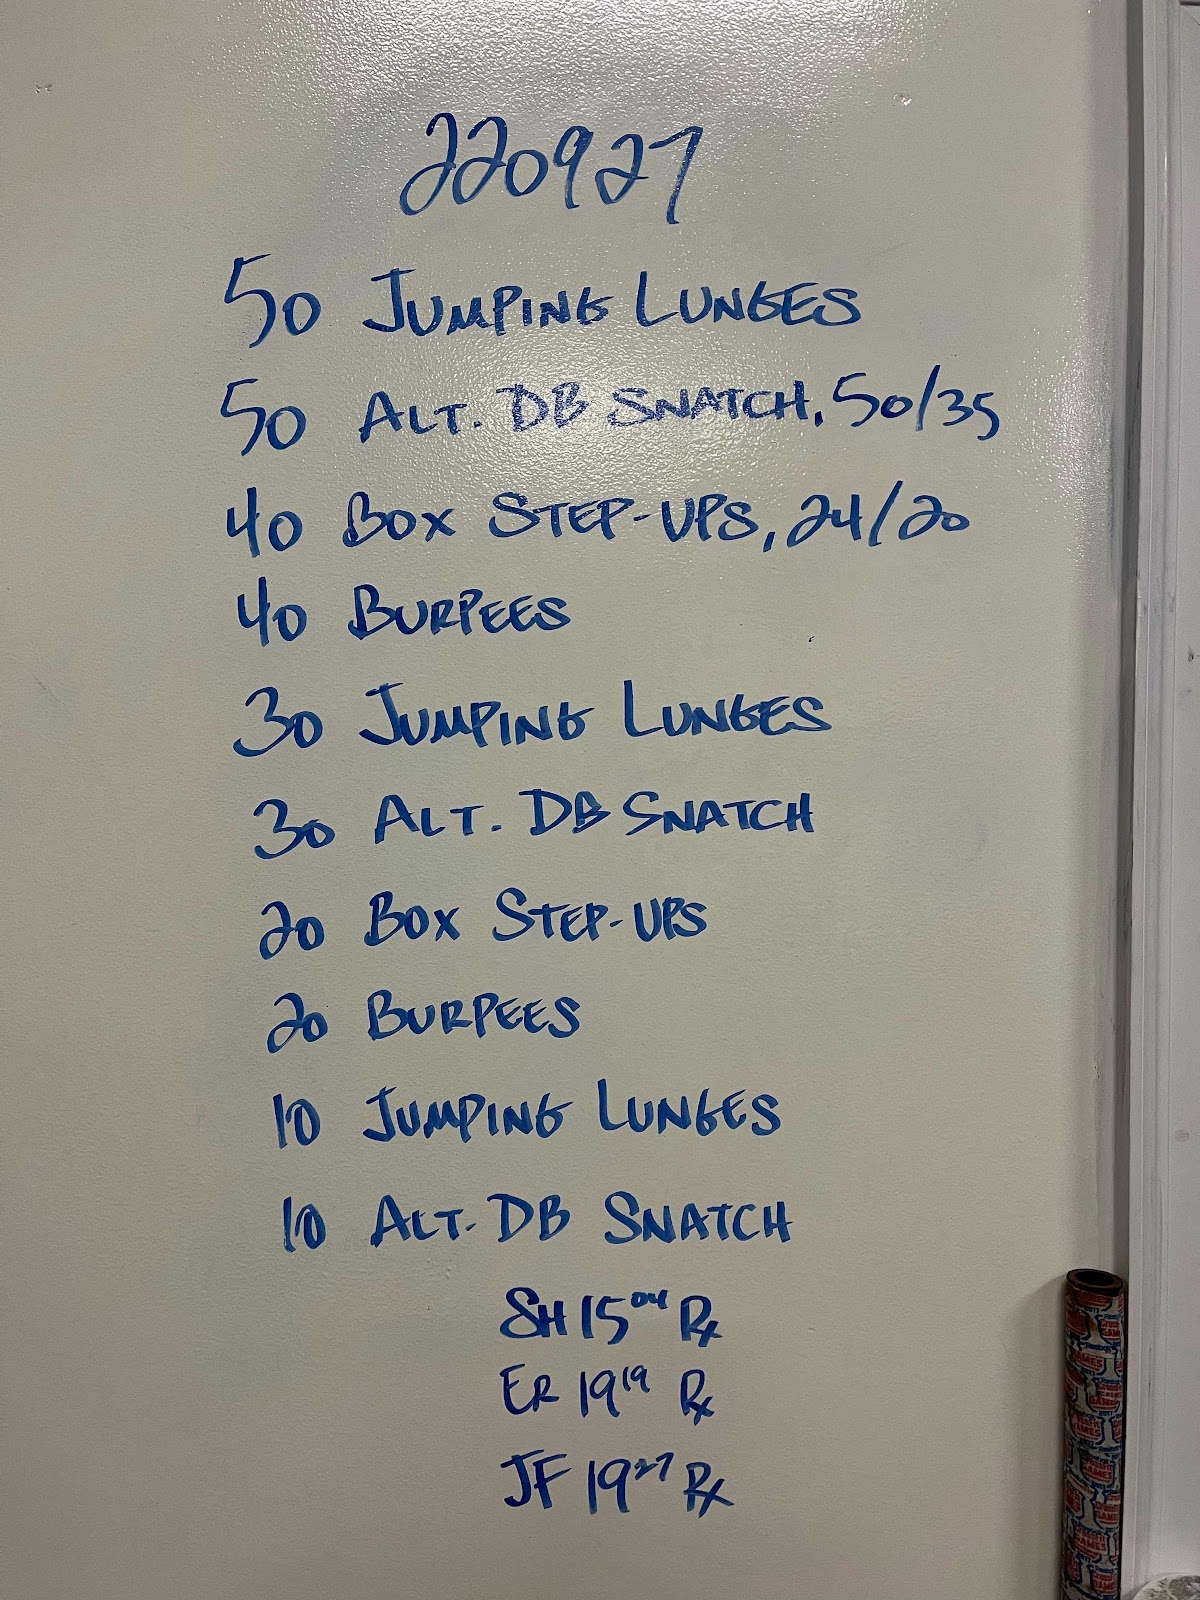 220927
50 JUMPING LUNGES
50 ALT. DB SNATCH, 50/35
40 BOX STEP-UPS, 24/20
40 BURPEES
30 JUMPING LUNGES
30 ALT. DB SNATCH
20 BOX STEP-UPS
20 BURPEES
10 JUMPING LUNGES
10 ALT. DB SNATCH
SH 15 04 Rx
ER 19 19 Rx
JF 19 27 Rx
GAMES